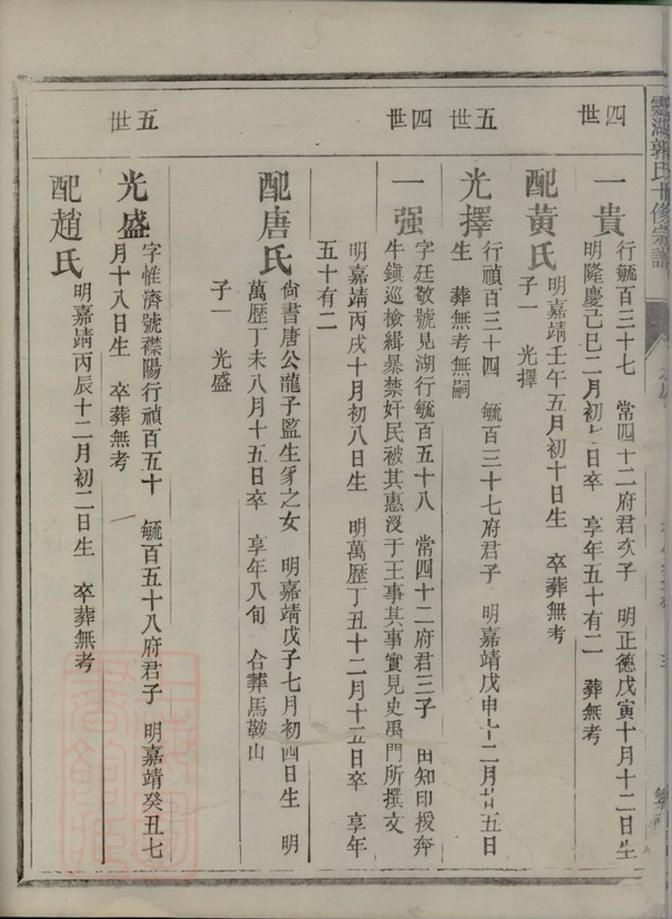 四世
一貴
行毓百三十七　常四十二府君次子　明正德戊寅十月十二日生
明隆慶己巳二月初七日卒　享年五十有二　葬無考
配黃氏
明嘉靖壬午五月初十日生　卒葬無考
子一　光擇
五世
光擇
行禎百三十四　毓百三十七府君子　明嘉靖戊申十二月廿五日
生　葬無考無嗣
四世
一强
字廷敬號見湖行毓百五十八　常四十二府君三子　由知印授奔
牛鎮巡檢緝暴禁奸民被其惠沒于王事其事實見史禹門所撰文
明嘉靖丙戌十月初八日生　明萬歷丁丑十二月十五日卒　享年
五十有二
配唐氏
尙書唐公龍子監生豸之女　明嘉靖戊子七月初四日生　明
萬歷丁未八月十五日卒　享年八旬　合葬馬鞍山
子一　光盛
五世
光盛
字惟濟號襟陽行禎百五十一　毓百五十八府君子　明嘉靖癸丑七
月十八日生　卒葬無考
配趙氏
明嘉靖丙辰十二月初二日生　卒葬無考